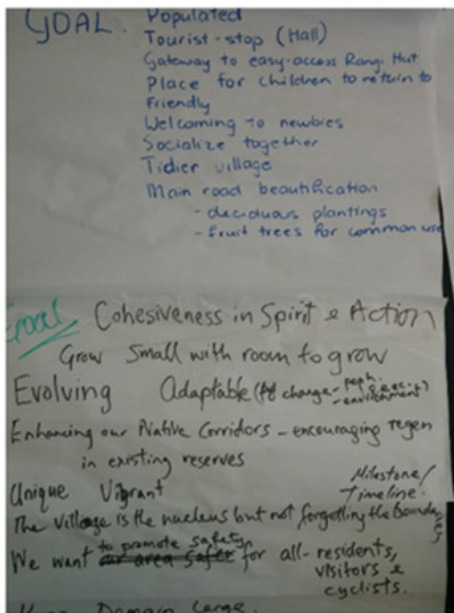 GOAL.
Populated
Tourist-stop (Hall)
Gateway to easy-access Rang. Hut
Place for children to return to
Friendly
Welcoming to newbies
Socialize together
Tidier village
Main road beautification
- deciduous plantings
- fruit trees for common use
Goal
Cohesiveness in Spirit & Action
Grow Small with room to grow
Evolving Adaptable (to change - 
- environment)
Enhancing our Native Corridors - encouraging regen
in existing reserves
Unique Vibrant
Milestone/
Timeline.
The Village is the nucleus but not forgetting the Boundaries
to promote safety
We want our area safer for all - residents,
visitors &
cyclists.
Domain Large.